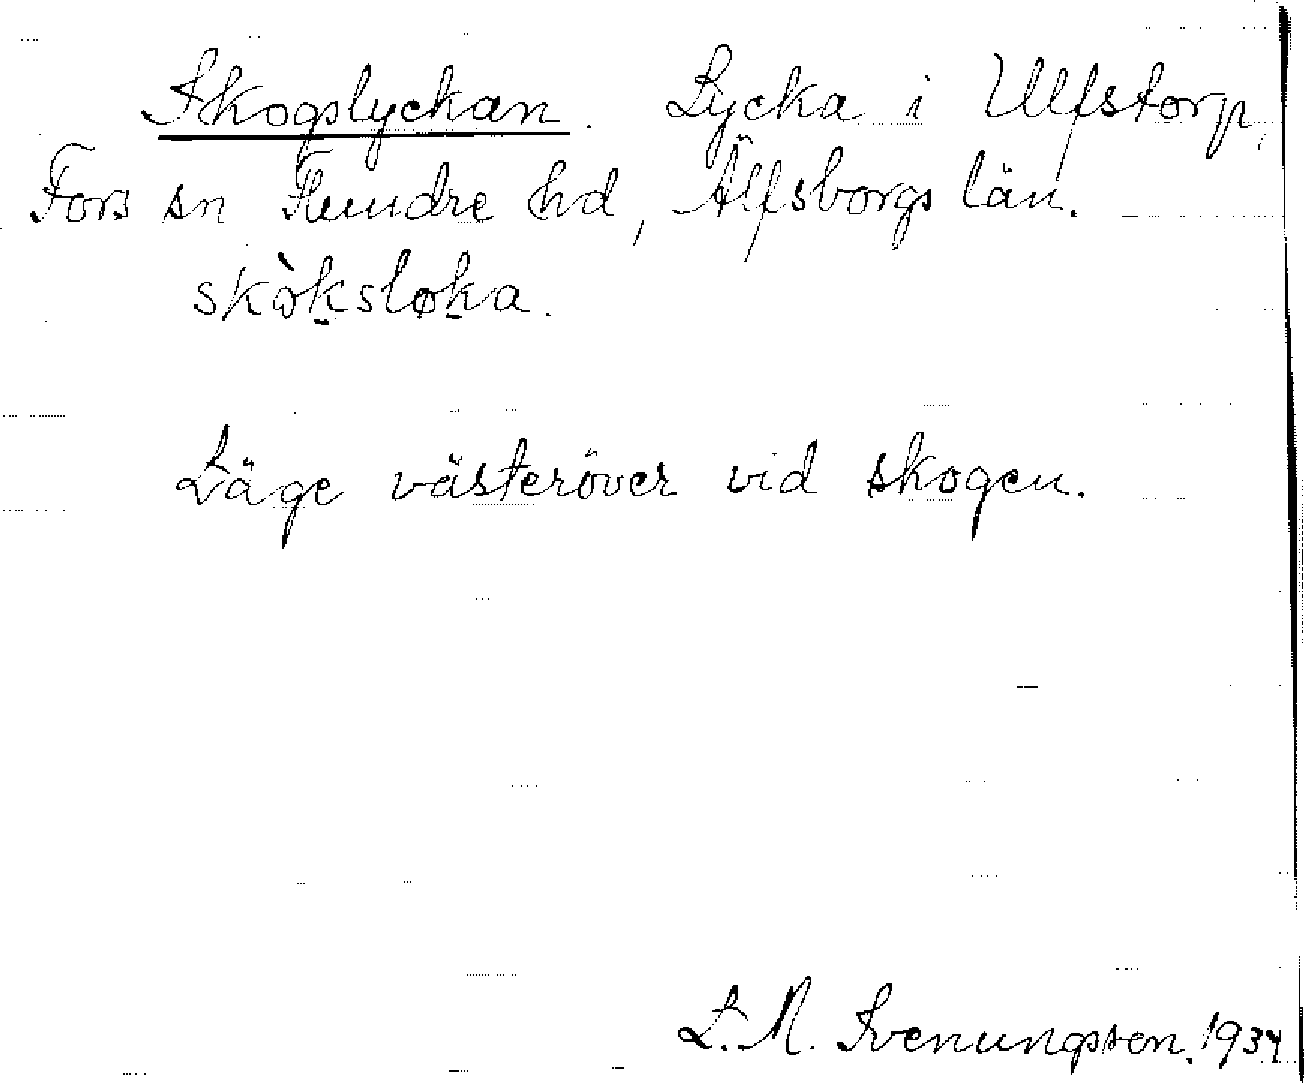 Skogslyckan. Lycka i Ulfstorp,
Fors sn Flundre hd, Älfsborgs län.
skòk̲sløk̲a.
Läge västeröver vid skogen.
L. M. Svenungsson. 1934